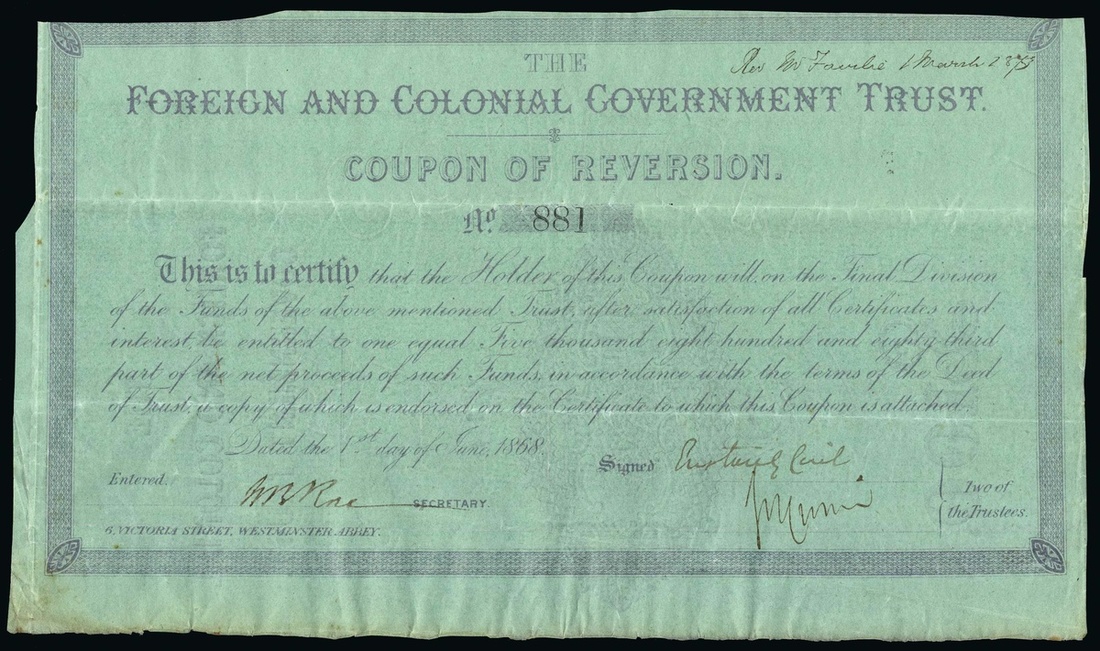 THE
Rev Mr Fowlie 1 March 1873
FOREIGN AND COLONIAL GOVERNMENT TRUST.
COUPON OF REVERSION.
No. 881
This is to certify that the Holder of this Coupon will, on the Final Division
of the Funds of the above mentioned Trust, after satisfaction of all Certificates and
interest, be entitled to one equal Five thousand eight hundred and eighty third
part of the net proceeds of such Funds, in accordance with the terms of the Deed
of Trust, a copy of which is endorsed on the Certificate to which this Coupon is attached.
Dated the 1st day of June, 1868.
Signed Eustace Cecil
Entered.
SECRETARY.
Two of
the Trustees.
6, VICTORIA STREET, WESTMINSTER ABBEY.